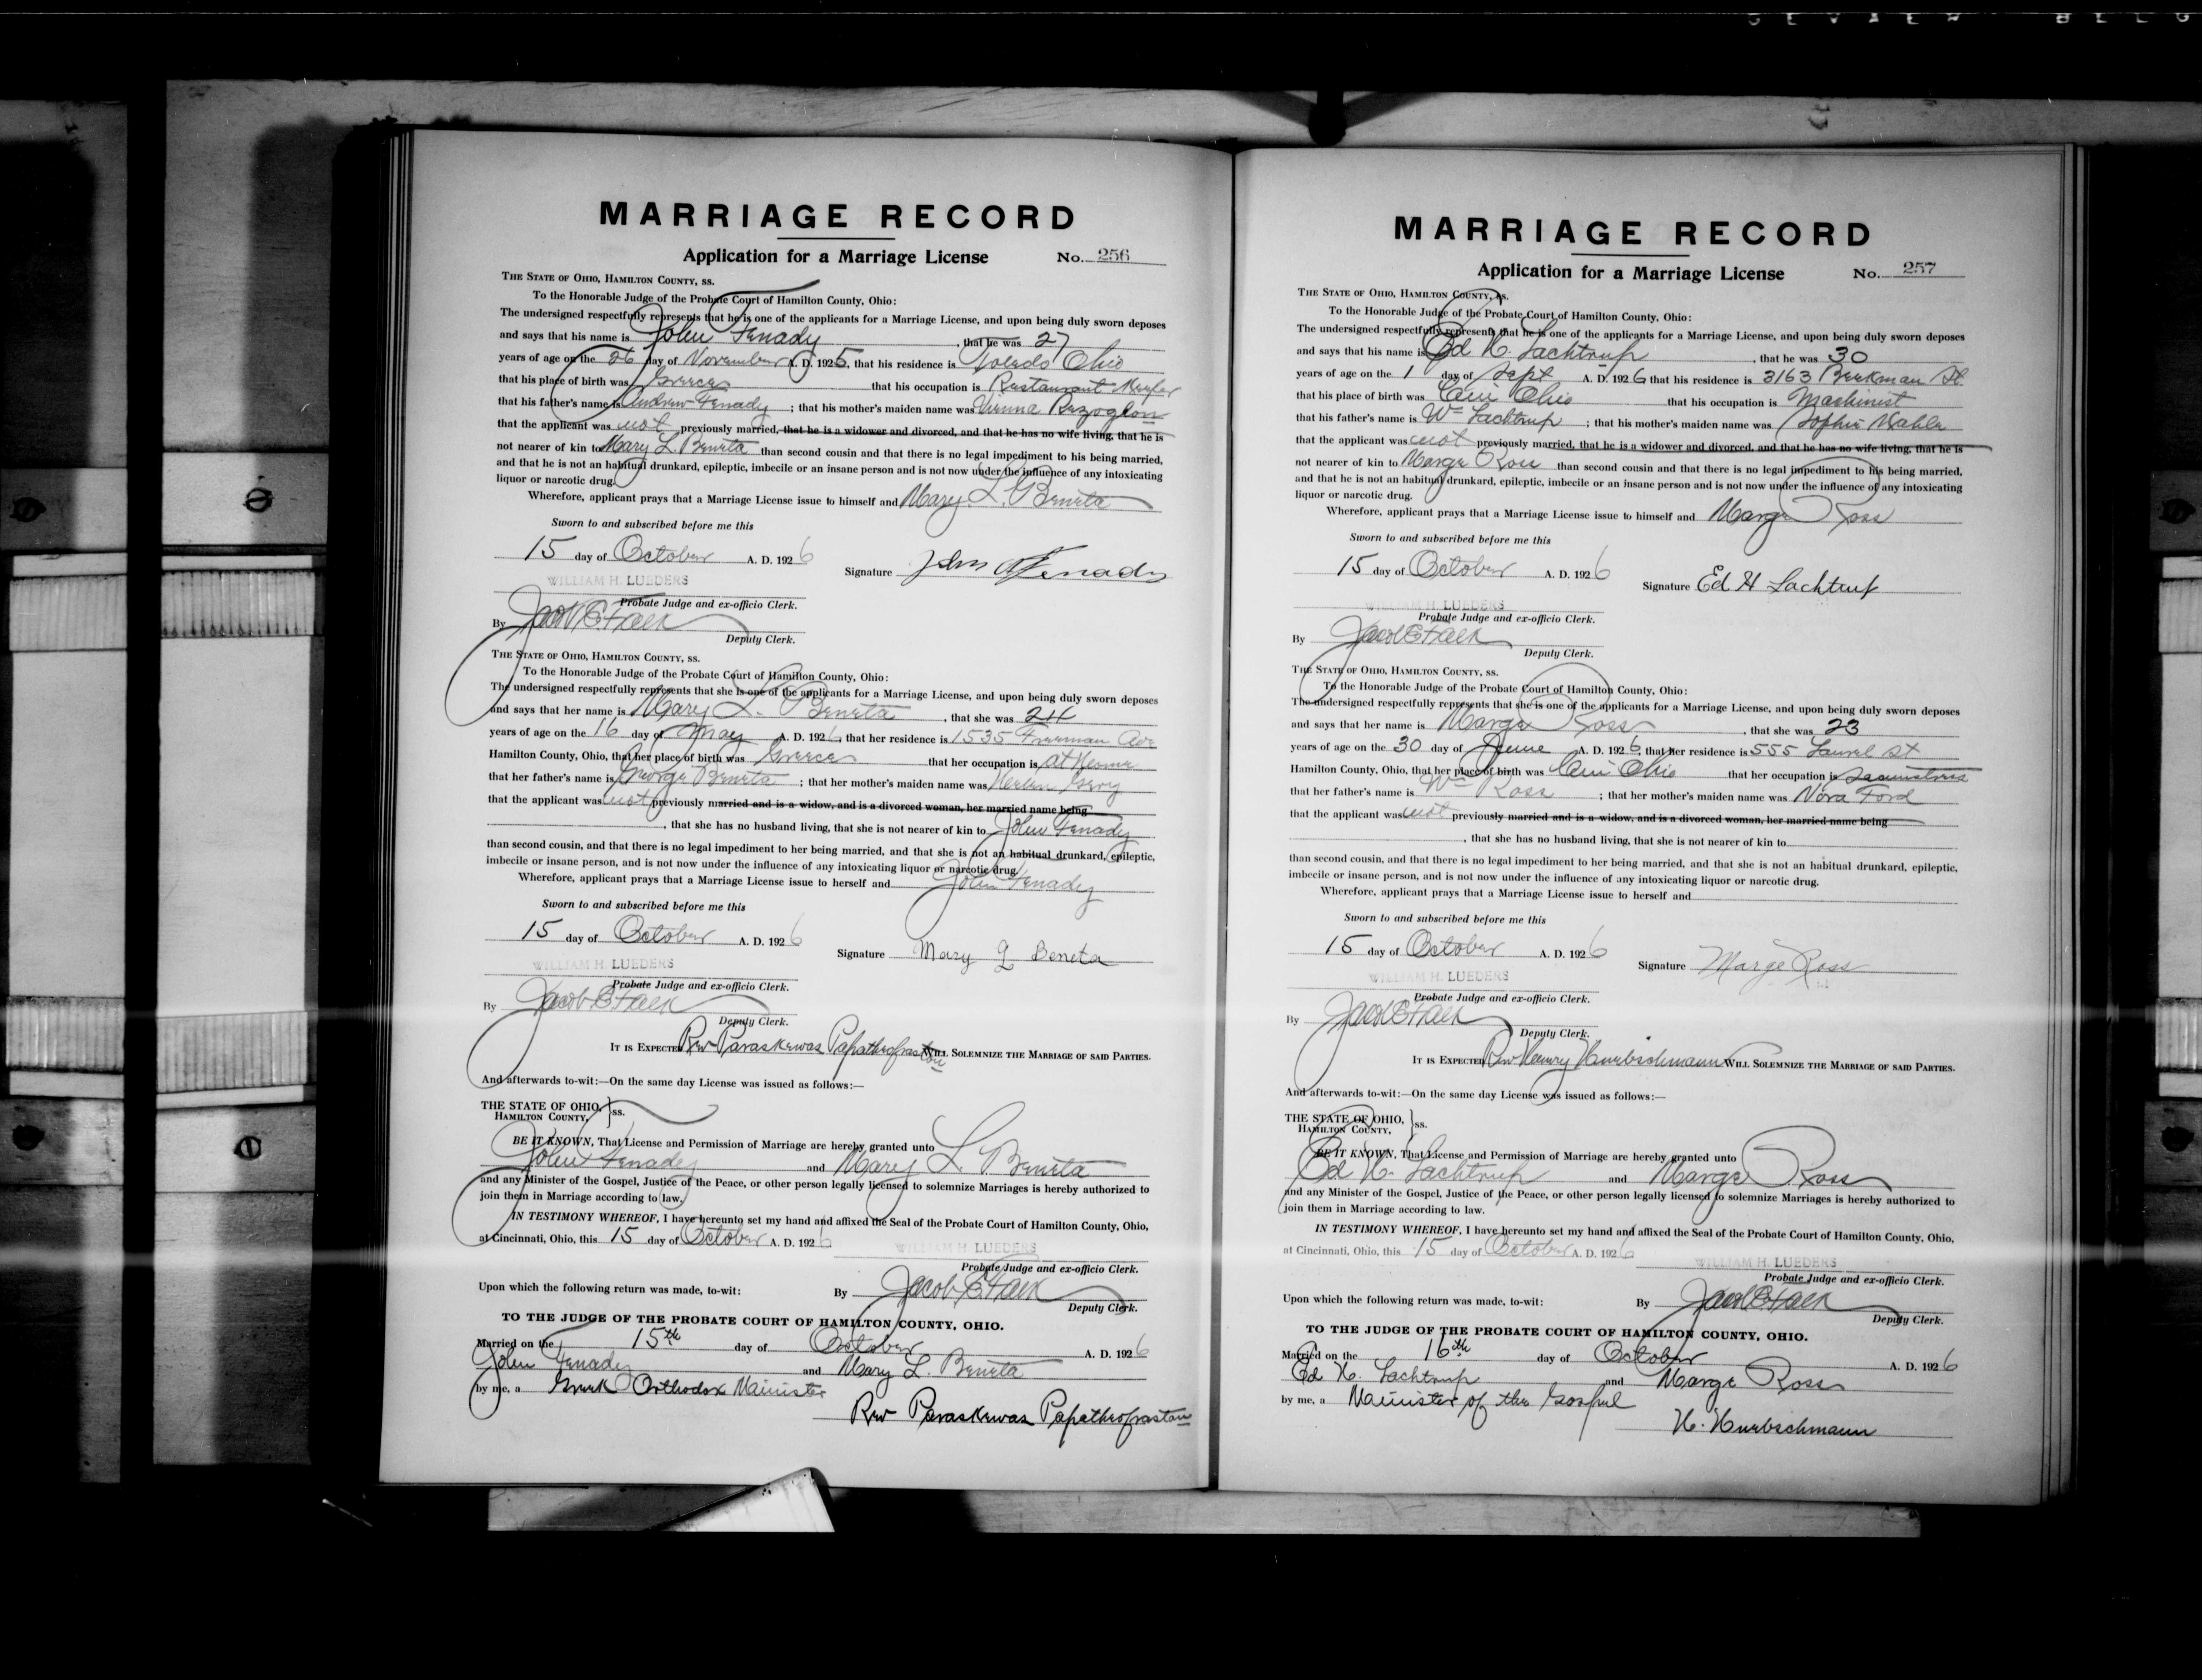 MARRIAGE RECORD
Application for a Marriage License No. 256
THE STATE OF OHIO, HAMILTON COUNTY, SS.
To the Honorable Judge of the Probate Court of Hamilton County, Ohio:
The undersigned respectfully represents that he is one of the applicants for a Marriage License, and upon being duly sworn deposes
and says that his name is John Fenady, that he was 27
years of age on the 26 day of November A. D. 1925, that his residence is Toledo Ohio
that his place of birth was Greece that his occupation is Restaurant Keeper
that his father's name is Andrew Fenady; that his mother's maiden name was Vienna
that the applicant was not previously married, that he is a widower and divorced, and that he has no wife living, that he is
not nearer of kin to Mary L. Beneta than second cousin and that there is no legal impediment to his being married,
and that he is not an habitual drunkard, epileptic, imbecile or an insane person and is not now under the influence of any intoxicating
liquor or narcotic drug.
Wherefore, applicant prays that a Marriage License issue to himself and Mary L. Beneta
Sworn to and subscribed before me this
15 day of October A. D. 1926
Signature John A Fenady
WILLIAM H. LUEDERS
Probate Judge and ex-officio Clerk.
By Jacob E Falk
Deputy Clerk.
THE STATE OF OHIO, HAMILTON COUNTY, SS.
To the Honorable Judge of the Probate Court of Hamilton County, Ohio:
The undersigned respectfully represents that she is one of the applicants for a Marriage License, and upon being duly sworn deposes
and says that her name is Mary L. Beneta, that she was 24
years of age on the 16 day of May A. D. 1926, that her residence is 1535 Freeman Ave
Hamilton County, Ohio, that her place of birth was Greece that her occupation is at Home
that her father's name is George Beneta; that her mother's maiden name was Helen
that the applicant was not previously married and is a widow, and is a divorced woman, her married name being
, that she has no husband living, that she is not nearer of kin to John Fenady
than second cousin, and that there is no legal impediment to her being married, and that she is not an habitual drunkard, epileptic,
imbecile or insane person, and is not now under the influence of any intoxicating liquor or narcotic drug.
Wherefore, applicant prays that a Marriage License issue to herself and John Fenady
Sworn to and subscribed before me this
15 day of October A. D. 1926
Signature Mary L Beneta
WILLIAM H. LUEDERS
Probate Judge and ex-officio Clerk.
By Jacob E Falk
Deputy Clerk.
IT IS EXPECTED Rev Paraskewas Papatheofrastou WILL SOLEMNIZE THE MARRIAGE OF SAID PARTIES.
And afterwards to-wit:—On the same day License was issued as follows:—
THE STATE OF OHIO, }ss.
HAMILTON COUNTY,
BE IT KNOWN, That License and Permission of Marriage are hereby granted unto
John Fenady and Mary L. Beneta
and any Minister of the Gospel, Justice of the Peace, or other person legally licensed to solemnize Marriages is hereby authorized to
join them in Marriage according to law.
IN TESTIMONY WHEREOF, I have hereunto set my hand and affixed the Seal of the Probate Court of Hamilton County, Ohio,
at Cincinnati, Ohio, this 15 day of October A. D. 1926
WILLIAM H. LUEDERS
Probate Judge and ex-officio Clerk.
Upon which the following return was made, to-wit: By Jacob E Falk
Deputy Clerk.
TO THE JUDGE OF THE PROBATE COURT OF HAMILTON COUNTY, OHIO.
Married on the 15th day of October A. D. 1926
John Fenady and Mary L. Beneta
by me, a Greek Orthodox Minister
Rev Paraskewas Papatheofrastou
MARRIAGE RECORD
Application for a Marriage License No. 257
THE STATE OF OHIO, HAMILTON COUNTY, SS.
To the Honorable Judge of the Probate Court of Hamilton County, Ohio:
The undersigned respectfully represents that he is one of the applicants for a Marriage License, and upon being duly sworn deposes
and says that his name is Ed H. Lachtrup, that he was 30
years of age on the 1 day of Sept A. D. 1926 that his residence is 3163 Beekman St.
that his place of birth was Cin Ohio that his occupation is Machinist
that his father's name is Wm Lachtrup; that his mother's maiden name was Sophia Mahle
that the applicant was not previously married, that he is a widower and divorced, and that he has no wife living, that he is
not nearer of kin to Marge Ross than second cousin and that there is no legal impediment to his being married,
and that he is not an habitual drunkard, epileptic, imbecile or an insane person and is not now under the influence of any intoxicating
liquor or narcotic drug.
Wherefore, applicant prays that a Marriage License issue to himself and Marge Ross
Sworn to and subscribed before me this
15 day of October A. D. 1926
Signature Ed H Lachtrup
WILLIAM H. LUEDERS
Probate Judge and ex-officio Clerk.
By Jacob E Falk
Deputy Clerk.
THE STATE OF OHIO, HAMILTON COUNTY, SS.
To the Honorable Judge of the Probate Court of Hamilton County, Ohio:
The undersigned respectfully represents that she is one of the applicants for a Marriage License, and upon being duly sworn deposes
and says that her name is Marge Ross, that she was 23
years of age on the 30 day of June A. D. 1926, that her residence is 555 Laurel St
Hamilton County, Ohio, that her place of birth was Cin Ohio that her occupation is Seamstress
that her father's name is Wm Ross; that her mother's maiden name was Nora Ford
that the applicant was not previously married and is a widow, and is a divorced woman, her married name being
, that she has no husband living, that she is not nearer of kin to
than second cousin, and that there is no legal impediment to her being married, and that she is not an habitual drunkard, epileptic,
imbecile or insane person, and is not now under the influence of any intoxicating liquor or narcotic drug.
Wherefore, applicant prays that a Marriage License issue to herself and
Sworn to and subscribed before me this
15 day of October A. D. 1926
Signature Marge Ross
WILLIAM H. LUEDERS
Probate Judge and ex-officio Clerk.
By Jacob E Falk
Deputy Clerk.
IT IS EXPECTED Rev Henry Huebschmann WILL SOLEMNIZE THE MARRIAGE OF SAID PARTIES.
And afterwards to-wit:—On the same day License was issued as follows:—
THE STATE OF OHIO, }ss.
HAMILTON COUNTY,
BE IT KNOWN, That License and Permission of Marriage are hereby granted unto
Ed H. Lachtrup and Marge Ross
and any Minister of the Gospel, Justice of the Peace, or other person legally licensed to solemnize Marriages is hereby authorized to
join them in Marriage according to law.
IN TESTIMONY WHEREOF, I have hereunto set my hand and affixed the Seal of the Probate Court of Hamilton County, Ohio,
at Cincinnati, Ohio, this 15 day of October A. D. 1926
WILLIAM H. LUEDERS
Probate Judge and ex-officio Clerk.
Upon which the following return was made, to-wit: By Jacob E Falk
Deputy Clerk.
TO THE JUDGE OF THE PROBATE COURT OF HAMILTON COUNTY, OHIO.
Married on the 16th day of October A. D. 1926
Ed H. Lachtrup and Marge Ross
by me, a Minister of the Gospel
H. Huebschmann